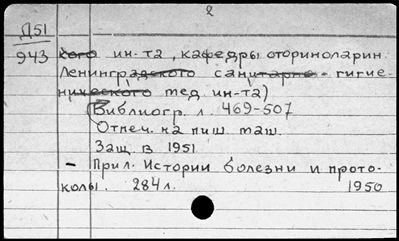 2
Д51
943 кого ин-та, кафедры оториноларин.
Ленинградского санитарно-гигие-
нического мед ин-та)
(Библиогр. л. 469-507
Отпеч. на пиш. маш.
Защ. в 1951
- Прил. Истории болезни и прото-
колы. 284 л. 1950